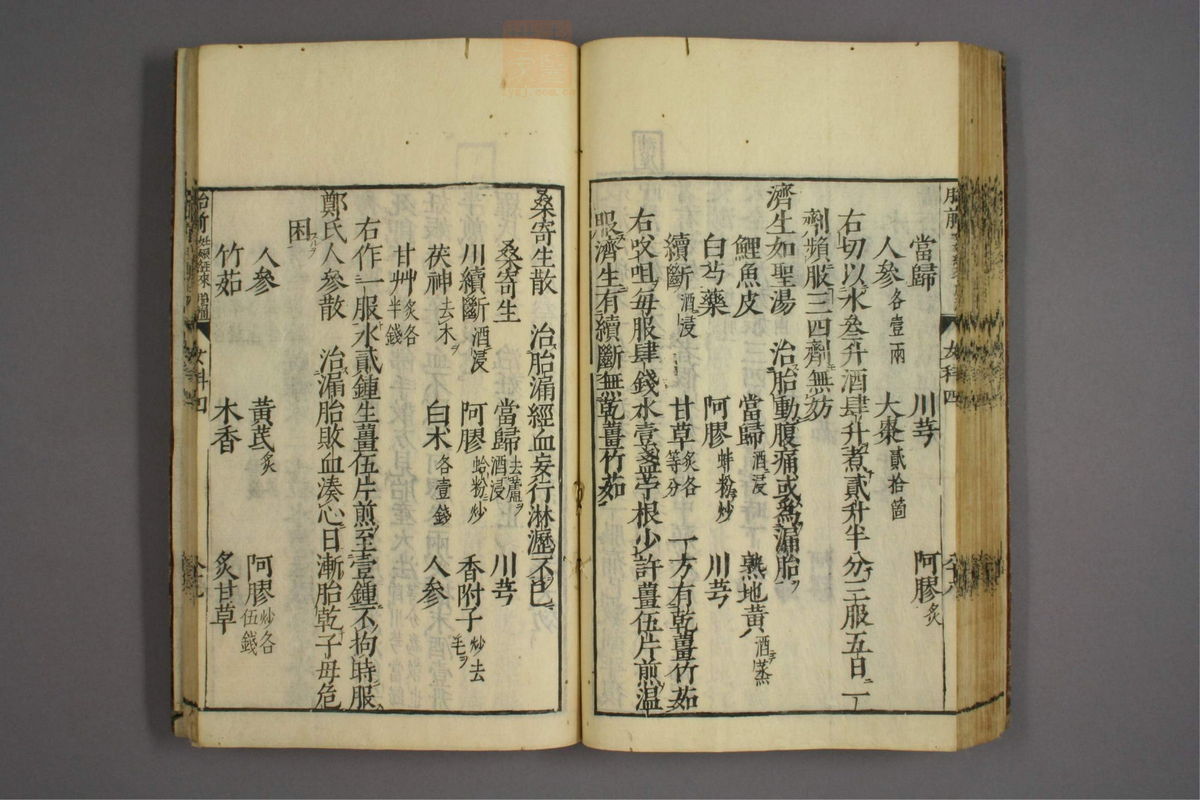 當歸 川芎 阿膠炙
人參各壹兩 大棗貳拾箇
右切以水叁升酒肆升煮貳升半分三服五日一
劑頻服三四劑無妨
濟生如聖湯 治胎動腹痛或為漏胎
鯉魚皮 當歸酒浸 熟地黃酒蒸
白芍藥 阿膠蚌粉炒 川芎
續斷酒浸 甘草炙各等分 一方有乾薑竹茹
右㕮咀每服肆錢水壹盞苧根少許薑伍片煎溫
服濟生有續斷無乾薑竹茹
桑寄生散 治胎漏經血妄行淋瀝不已
桑寄生 當歸去蘆酒浸 川芎
川續斷酒浸 阿膠蛤粉炒 香附子炒去毛
茯神去木 白朮各壹錢 人參
甘艸炙各半錢
右作一服水貳鍾生薑伍片煎至壹鍾不拘時服
鄭氏人參散 治漏胎敗血湊心日漸胎乾子母危
困
人參 黃芪炙 阿膠炒各伍錢
竹茹 木香 炙甘草
胎前
女科四